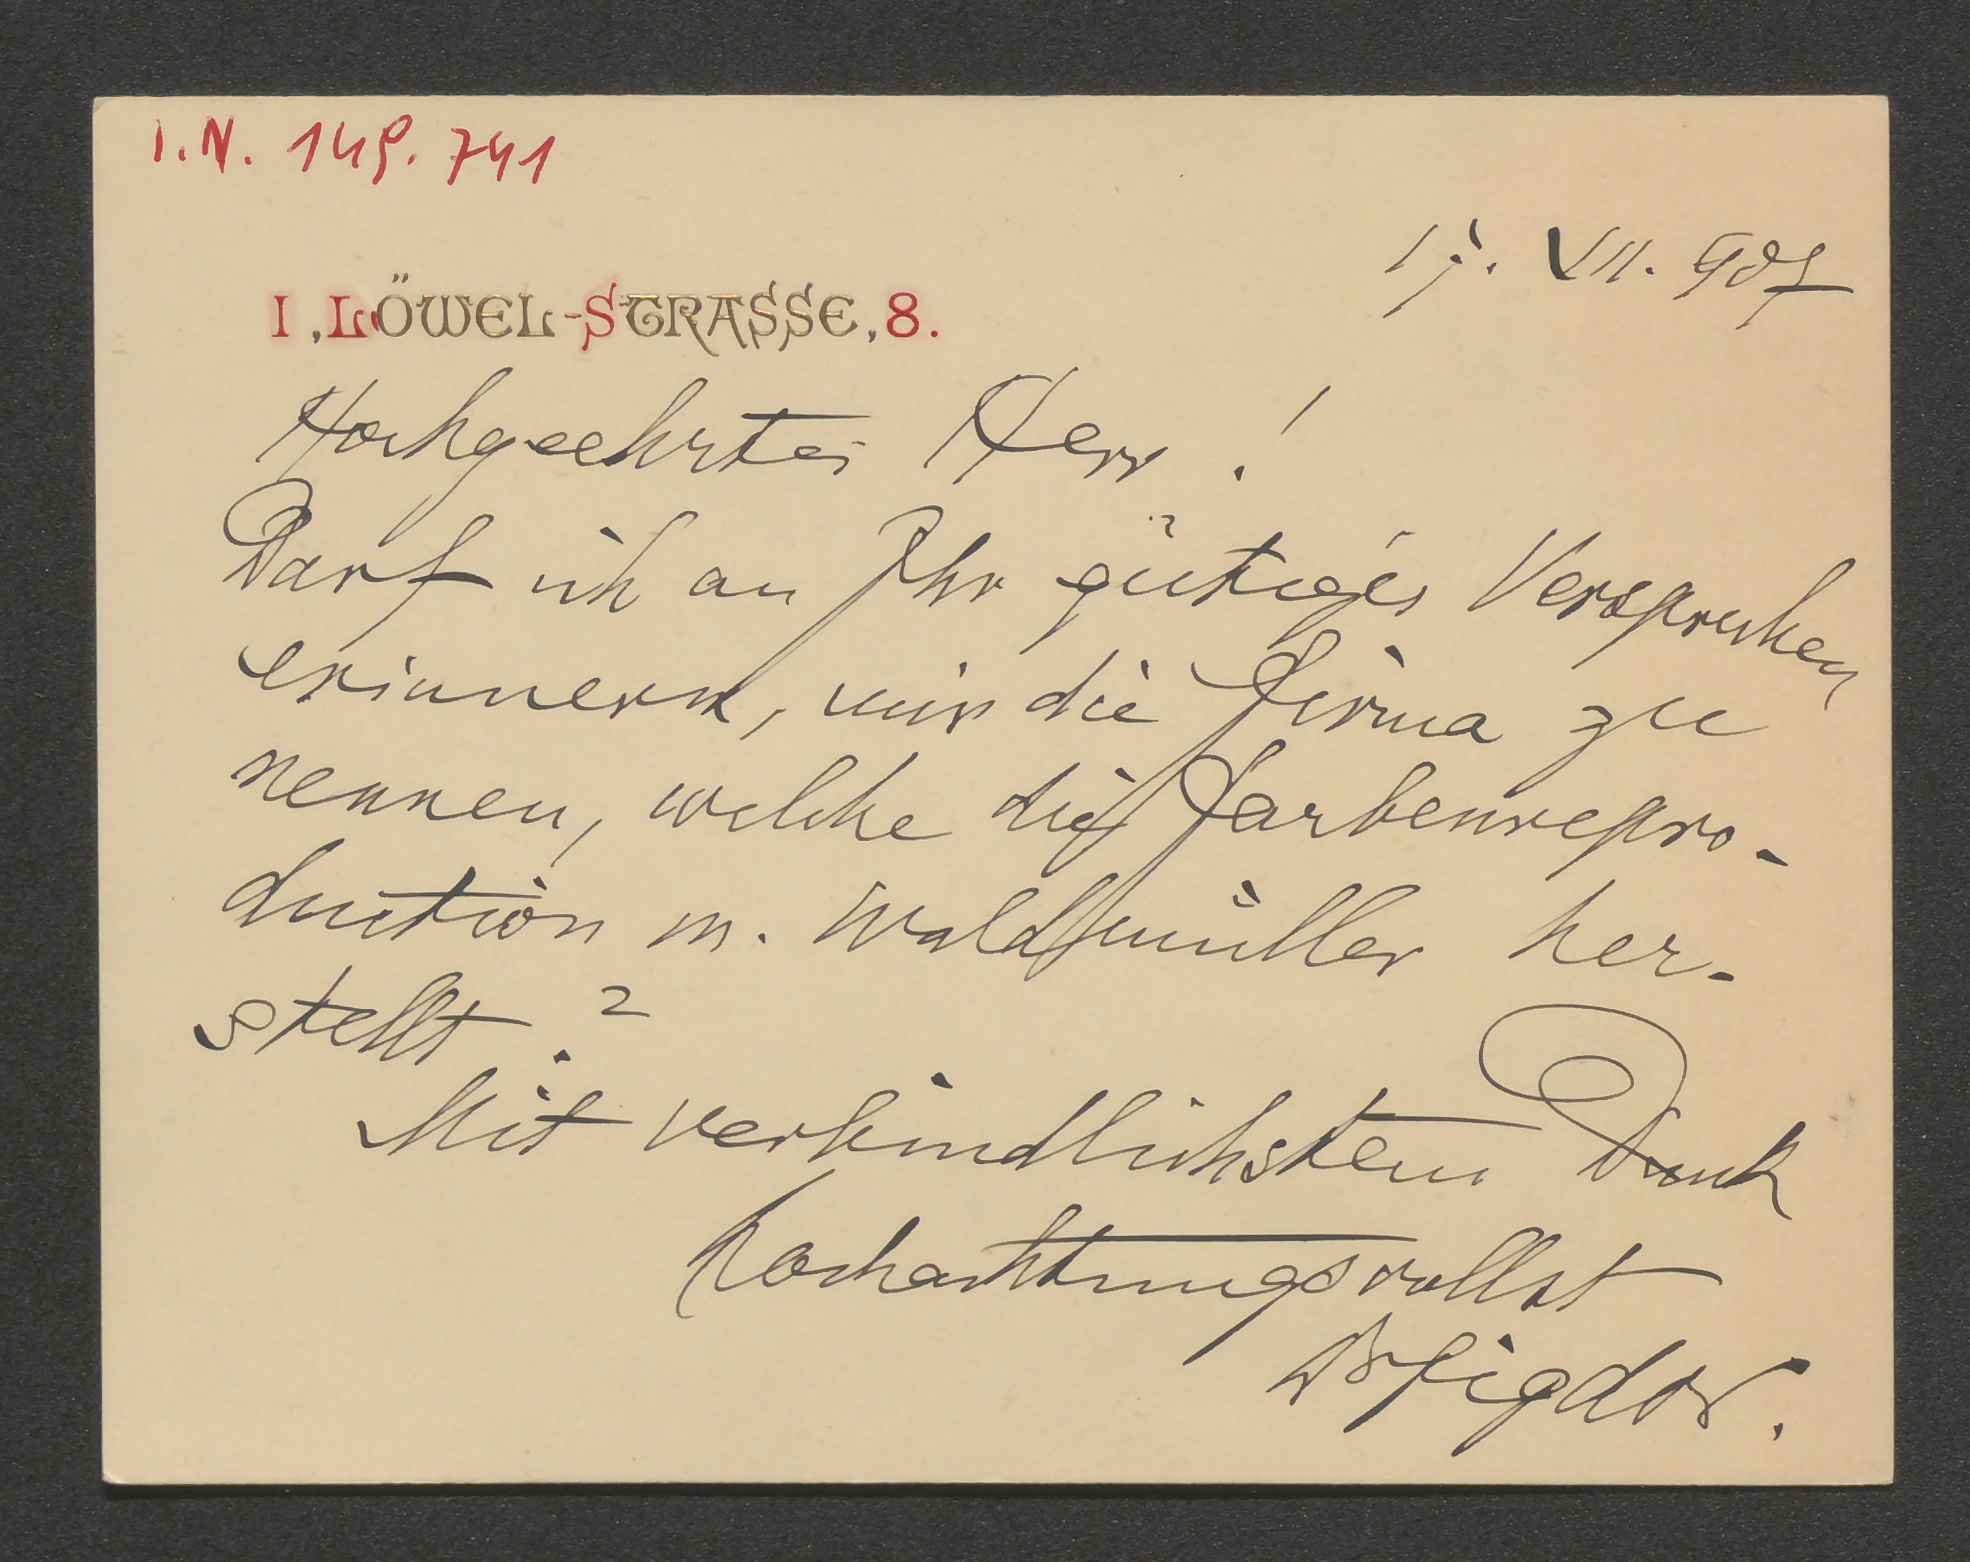 I.N. 149.741
17. VII. 907
I, LÖWEL-STRASSE, 8.
Hochgeehrter Herr!
Darf ich an Ihr gütiges Versprechen
erinnern, mir die Firma zu
nennen, welche die Farbenrepro-
duction m. Waldmüller her-
stellt?
Mit verbindlichstem Dank
hochachtungsvollst
Dr Figdor.